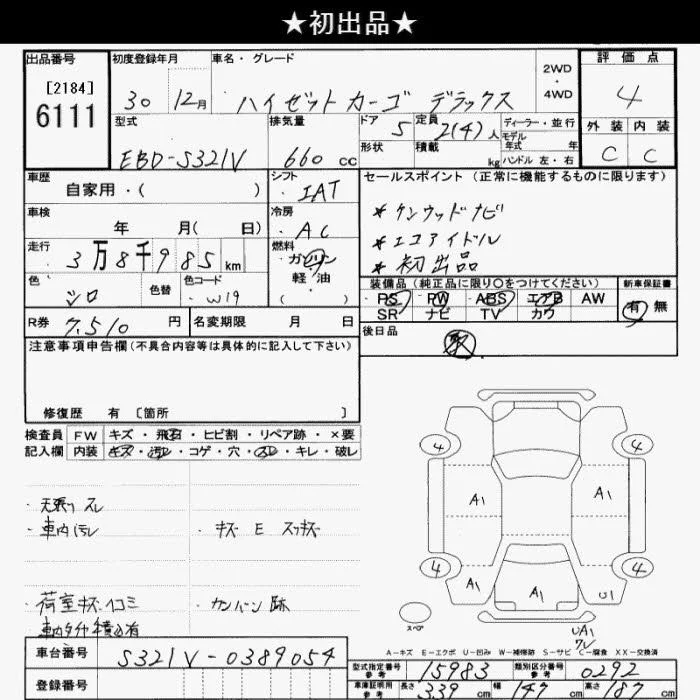 ★初出品★
出品番号
[2184]
6111
初度登録年月
30 12月
車名・グレード
ハイゼットカーゴ デラックス
2WD
・
4WD
評価点
4
型式
EBD-S321V
排気量
660 cc
ドア
5
定員
2(4)人
形状
積載
kg
ディーラー・並行
モデル
年式 年
ハンドル 左・右
外装 内装
C C
車歴
自家用・( )
シフト
IAT
セールスポイント(正常に機能するものに限ります)
*ケンウッドナビ
*エコアイドル
*初出品
車検
年 月( 日)
冷房
AC
走行
3万8千985km
燃料
ガソリン
軽・油
( )
色
シロ
色替
色コード
W19
装備品(純正品に限り○をつけてください)
PS PW ABS エアB AW
SR ナビ TV カワ
新車保証書
有 無
R券
7,510 円
名変期限 月 日
後日品
注意事項申告欄(不具合内容等は具体的に記入して下さい)
修復歴 有 [箇所 ]
検査員
記入欄
FW キズ・飛石・ヒビ割・リペア跡・×要
内装 キズ・汚レ・コゲ・穴・スレ・キレ・破レ
・天張りスレ
・車内汚レ
・キズ E スリキズ
・荷室キズ凹コミ
・カンバン跡
4 4
A1 A1
4 4
A1 A1 U1
スペア
UA1
ワレ
A-キズ E-エクボ U-凹み W-補修跡 S-サビ C-腐食 XX-交換済
車台番号
S321V-0389054
登録番号
型式指定番号
参考
15983
類別区分番号
参考
0292
車庫証明用
参考
長さ 339 cm 幅 147 cm 高さ 187 cm